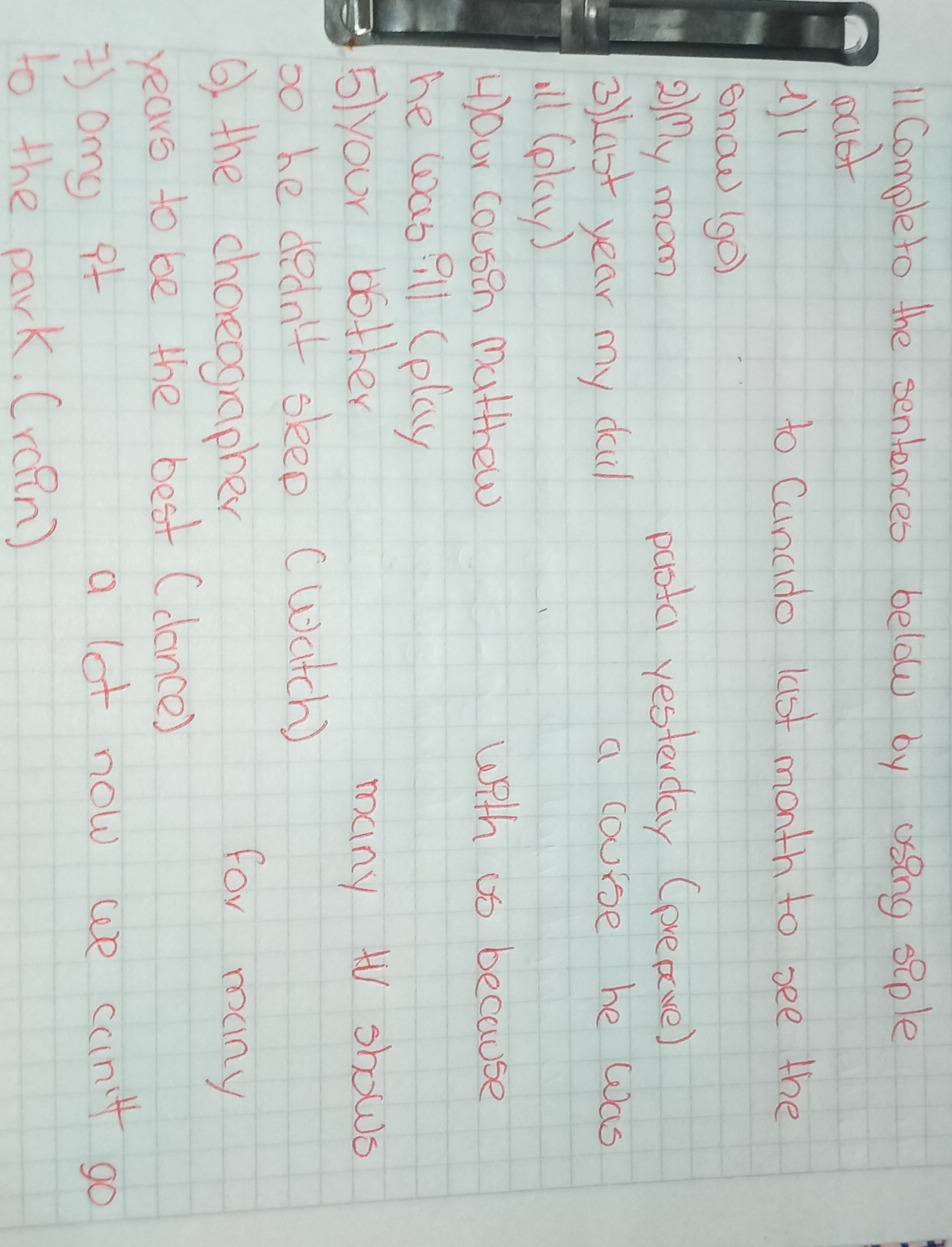 11 Completo the sentences below by using siple
past
1) I to Canada last month to see the
snow (go)
2) My mom pasta yesterday (prepare)
3) Last year my dad a course he was
ill (play)
4) Our cousin Matthew with us because
he was ill (play
5) your bother many TV shows
so he didn't sleep (watch)
6) the choreographer for many
years to be the best (dance)
7) omg it a lot now we can't go
to the park. (rain)